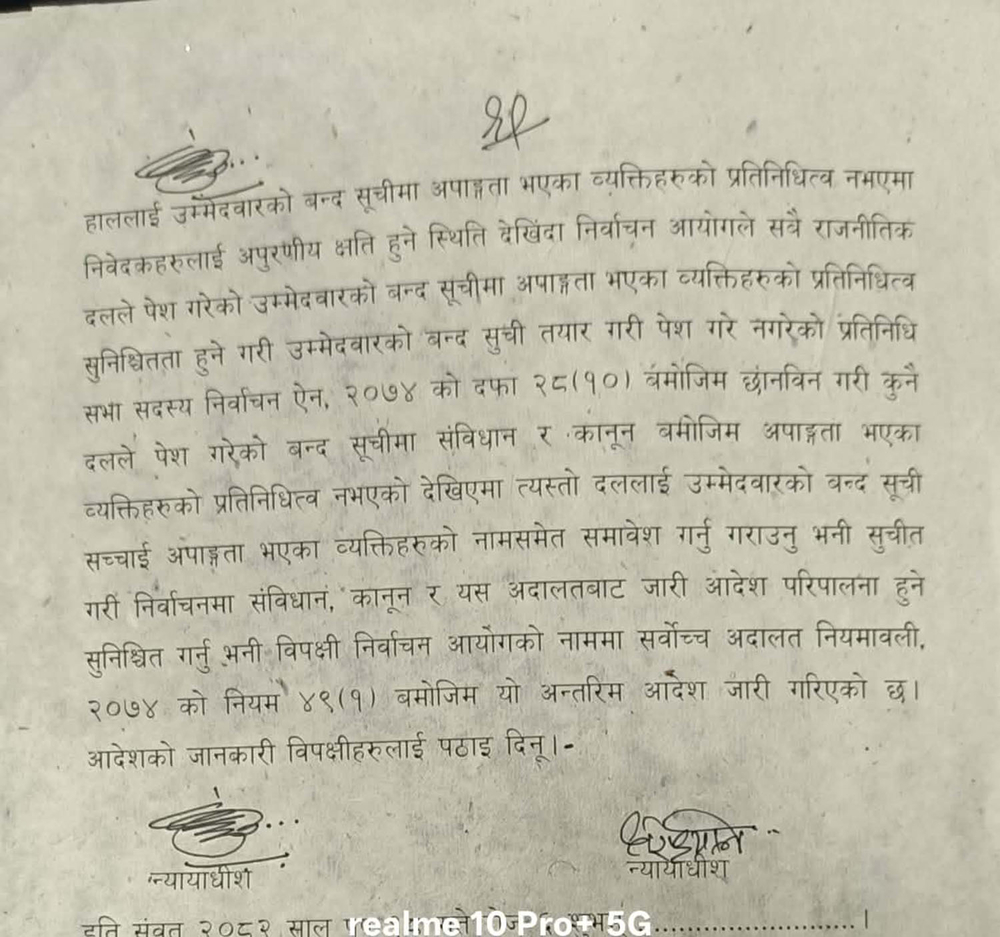 हाललाई उम्मेदवारको बन्द सूचीमा अपाङ्गता भएका व्यक्तिहरुको प्रतिनिधित्व नभएमा
निवेदकहरुलाई अपुरणीय क्षति हुने स्थिति देखिंदा निर्वाचन आयोगले सबै राजनीतिक
दलले पेश गरेको उम्मेदवारको बन्द सूचीमा अपाङ्गता भएका व्यक्तिहरुको प्रतिनिधित्व
सुनिश्चितता हुने गरी उम्मेदवारको बन्द सुची तयार गरी पेश गरे नगरेको प्रतिनिधि
सभा सदस्य निर्वाचन ऐन, २०७४ को दफा २८(१०) बमोजिम छानविन गरी कुनै
दलले पेश गरेको बन्द सूचीमा संविधान र कानून बमोजिम अपाङ्गता भएका
व्यक्तिहरुको प्रतिनिधित्व नभएको देखिएमा त्यस्तो दललाई उम्मेदवारको बन्द सूची
सच्चाई अपाङ्गता भएका व्यक्तिहरुको नामसमेत समावेश गर्नु गराउनु भनी सुचीत
गरी निर्वाचनमा संविधान, कानून र यस अदालतबाट जारी आदेश परिपालना हुने
सुनिश्चित गर्नु भनी विपक्षी निर्वाचन आयोगको नाममा सर्वोच्च अदालत नियमावली,
२०७४ को नियम ४९(१) बमोजिम यो अन्तरिम आदेश जारी गरिएको छ।
आदेशको जानकारी विपक्षीहरुलाई पठाइ दिनू।-
न्यायाधीश न्यायाधीश
इति संवत २०८२ साल
realme 10 Pro+ 5G